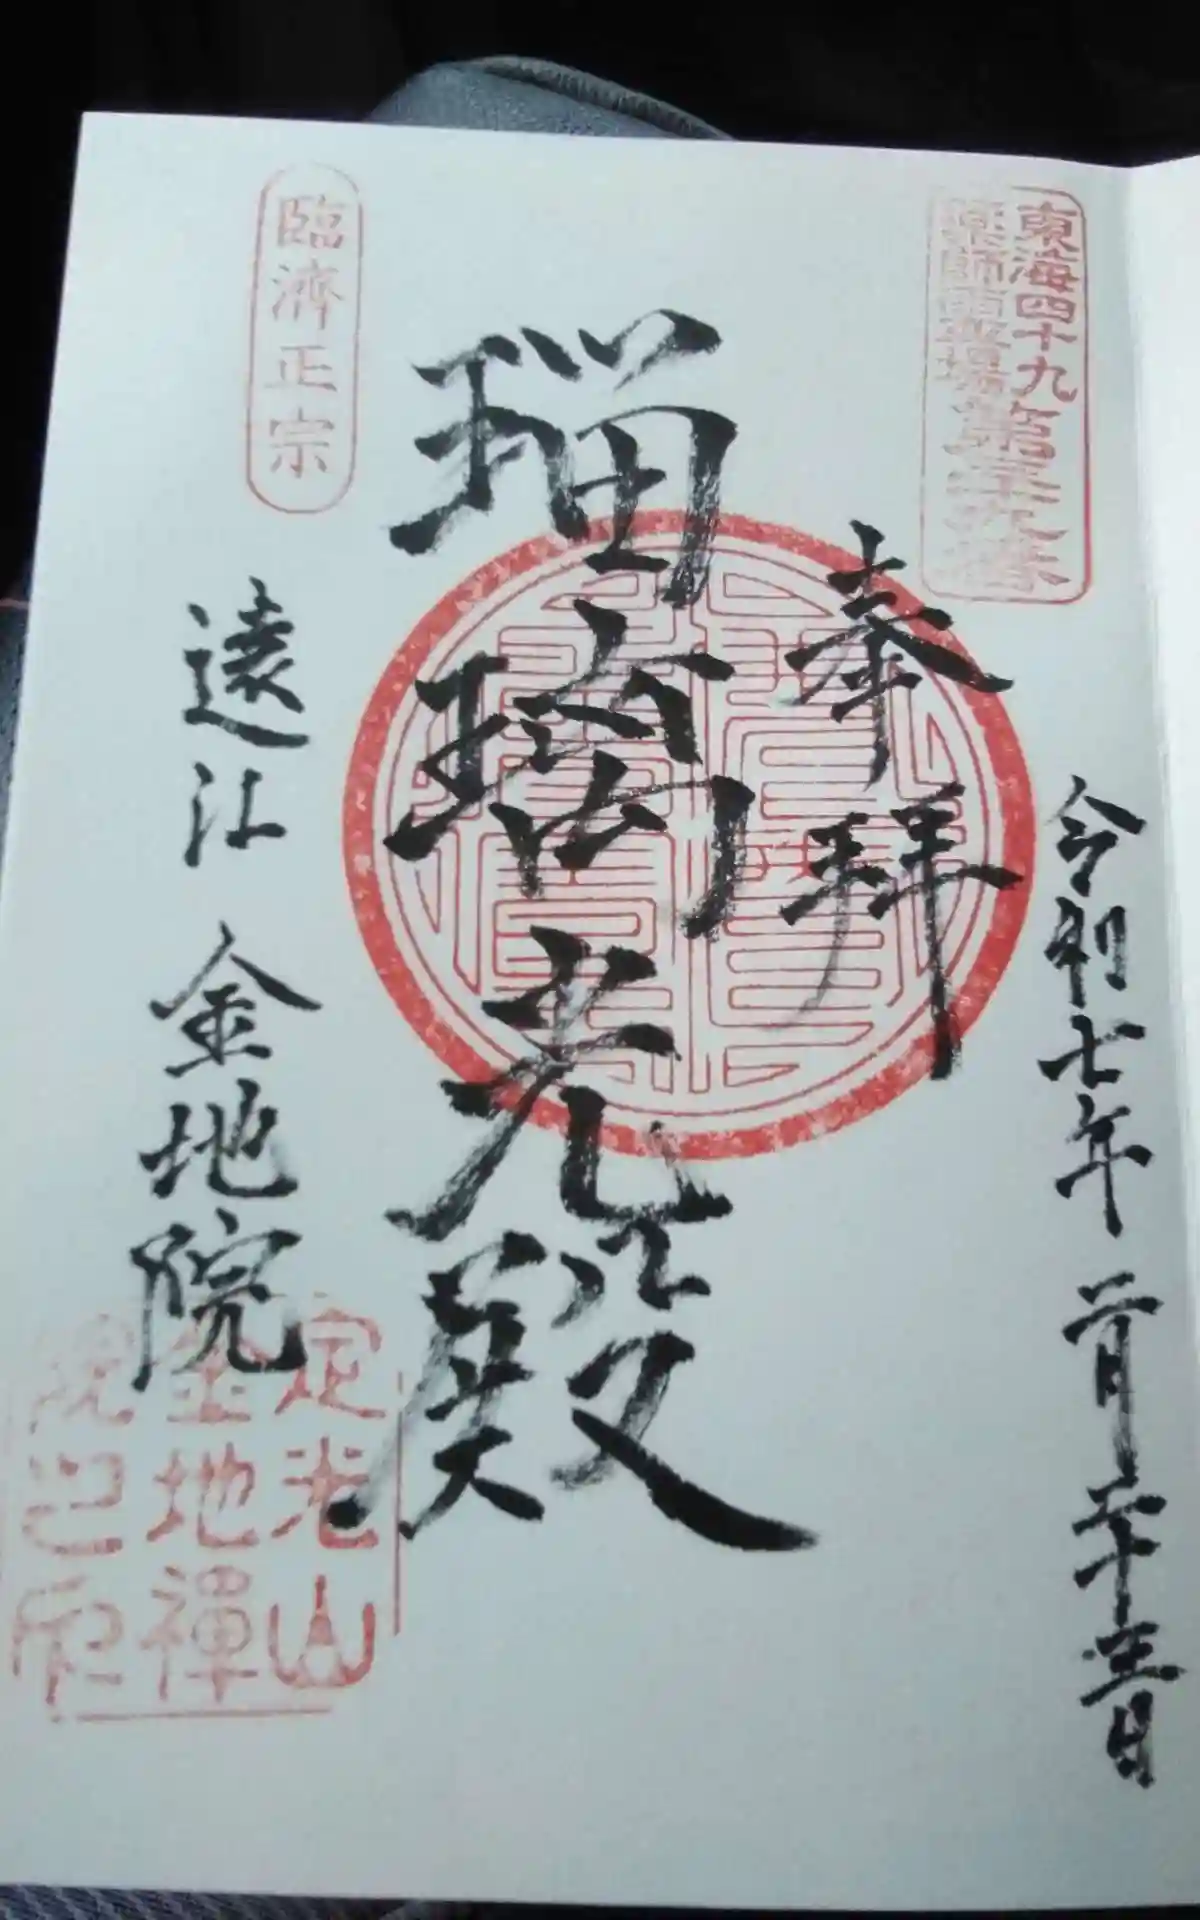 東海四十九
薬師霊場第三十九番
奉拝
令和七年二月二十三日
瑠璃光殿
臨済正宗
遠江 金地院
定光山
金地禅
院之印